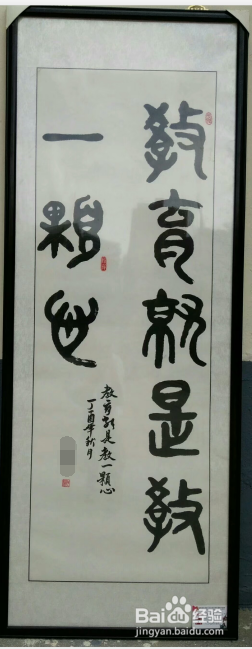 教育就是教
一颗心
教育就是教一颗心
丁酉年秋月
Baidu 经验
jingyan.baidu.com